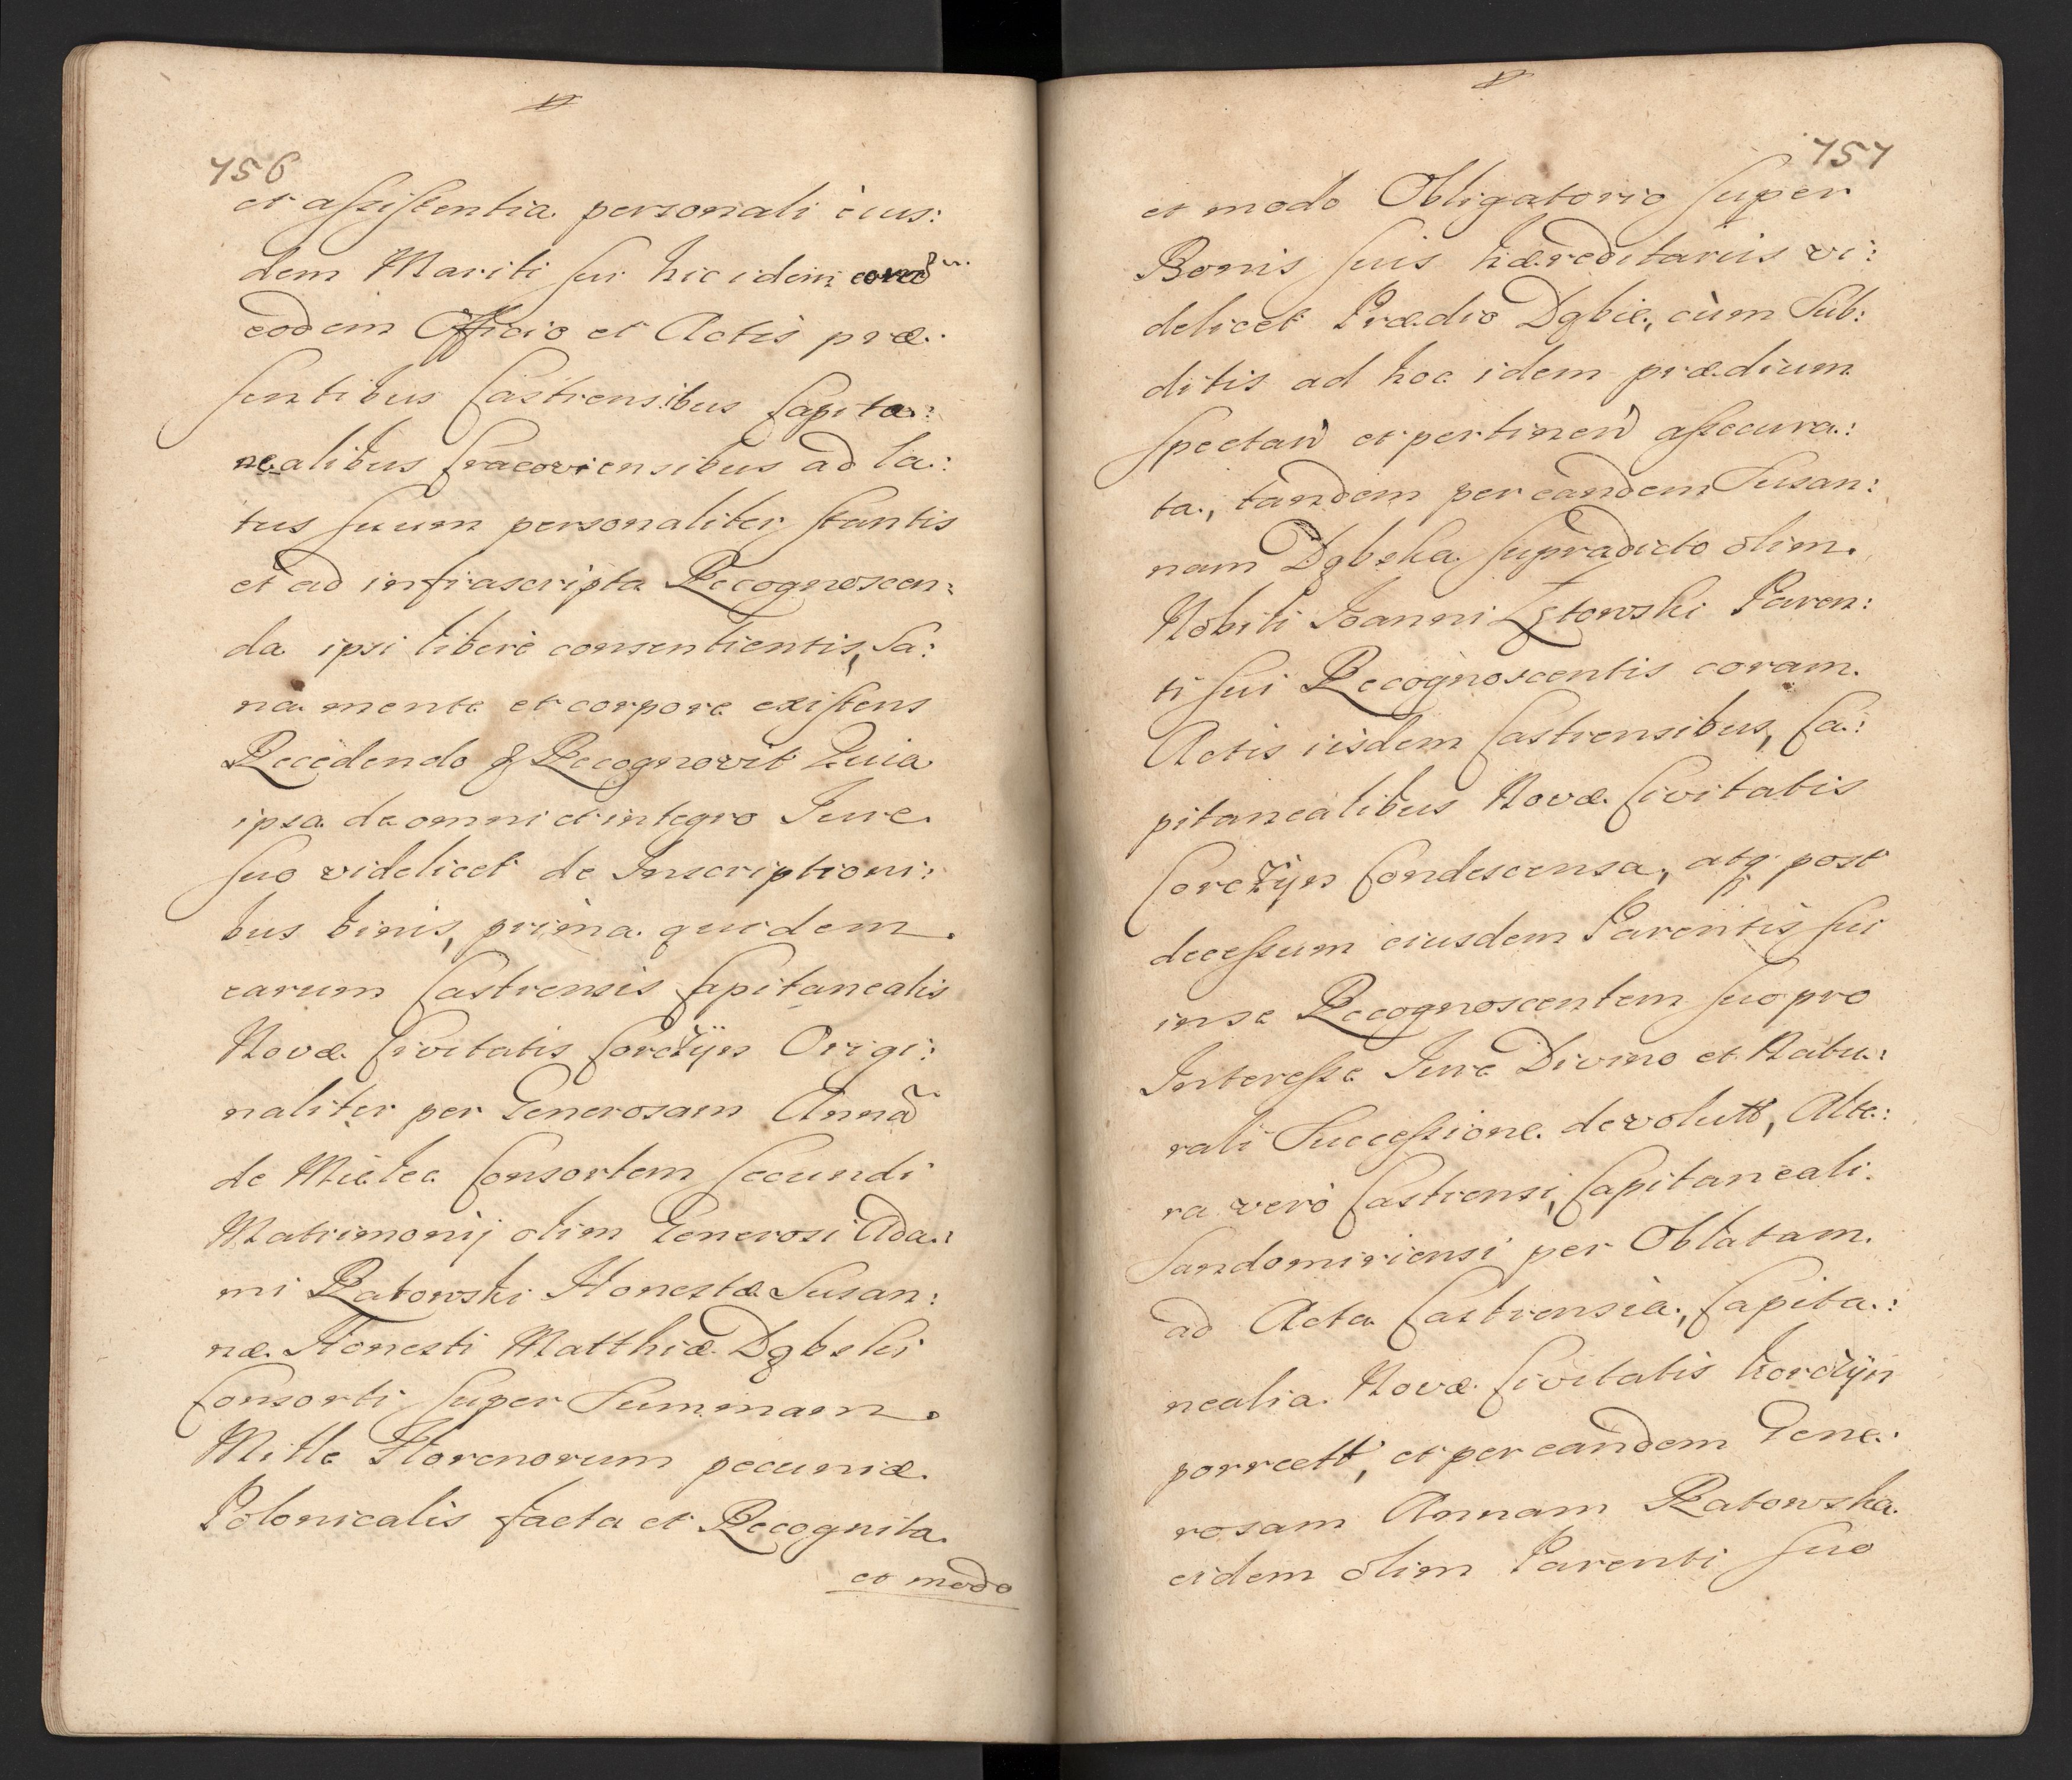 756
et assistentia personali eius:
dem Mariti sui hic idem coram
eodem Officio et Actis præ:
sentibus Castrensibus Capita:
nealibus Cracoviensibus ad la:
tus suum personaliter stantis
et ad infrascripta Recognoscen:
da ipsi liberè consentientis, sa:
na mente et corpore existens
Recedendo & Recognovit Quia
ipsa de omni et integro Iure
suo videlicet de Inscriptioni:
bus binis, prima quidem
earum Castrensis Capitanealis
Novæ Civitatis Corczÿn Origi:
naliter per Generosam Annã
de Mielec Consortem secundi
Matrimonij olim Generosi Ada:
mi Ratowski Honestæ Susan:
næ Honesti Matthiæ Dąbski
Consorti super Summam
Mille Florenorum pecuniæ
Polonicalis facta et Recognita
et modo
757
et modo Obligatorio super
Bonis suis hæreditariis vi:
delicet Prædio Dąbie, cùm Sub:
ditis ad hoc idem prædium
spectañ et pertineñ assecura:
ta, tandem per eandem Susan:
nam Dąbska supradicto olim
Nobili Ioanni Zętowski Paren:
ti sui Recognoscentis coram
Actis iisdem Castrensibus, Ca:
pitanealibus Novæ Civitatis
Corczÿn Condescensa, atq post
decessum eiusdem Parentis sui
in se Recognoscentem suo pro
Interesse Iure Divino et Natu:
rali Successione devolutt, Alte:
ra verò Castrensi, Capitaneali
Sandomiriensi per Oblatam
ad Acta Castrensia, Capita:
nealia Novæ Civitatis Korczÿn
porrectt, et per eandem Gene:
rosam Annam Ratowska
eidem olim Parenti suo